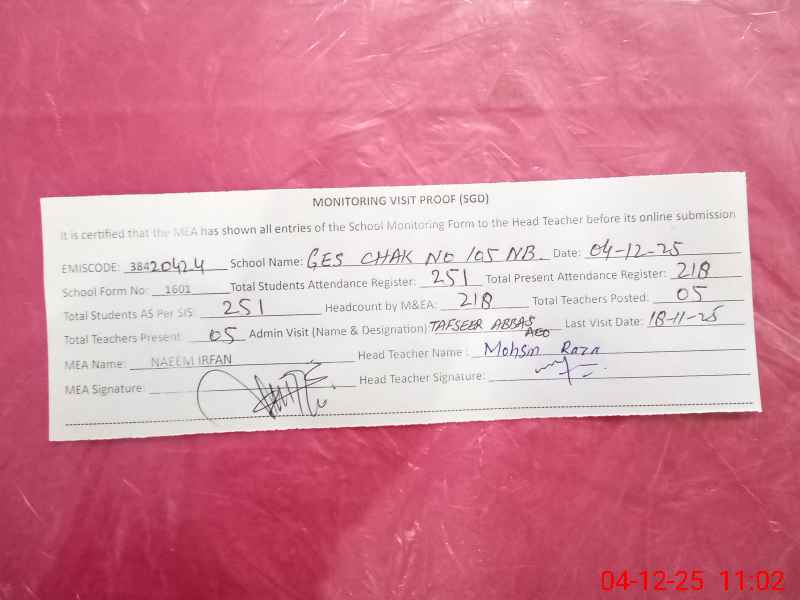 MONITORING VISIT PROOF (SGD)
It is certified that the MEA has shown all entries of the School Monitoring Form to the Head Teacher before its online submission
EMISCODE: 38420424 School Name: GES CHAK NO 105 NB. Date: 04-12-25
School Form No: 1601 Total Students Attendance Register: 251 Total Present Attendance Register: 218
Total Students AS Per SIS: 251 Headcount by M&EA: 218 Total Teachers Posted: 05
Total Teachers Present: 05 Admin Visit (Name & Designation) TAFSEER ABBAS AEO Last Visit Date: 18-11-25
MEA Name: NAEEM IRFAN Head Teacher Name : Mohsin Raza
MEA Signature: Head Teacher Signature:
04-12-25 11:02